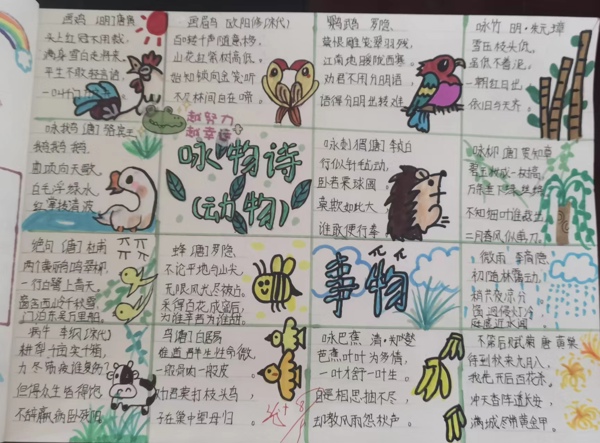 画鸡 [明]唐寅
头上红冠不用裁,
满身雪白走将来。
平生不敢轻言语,
一叫千门
画眉鸟 欧阳修(宋代)
百啭千声随意移,
山花红紫树高低。
始知锁向金笼听
不及林间自在啼。
鹦鹉 罗隐
莫恨雕笼翠羽残,
江南地暖陇西寒。
劝君不用分明语,
语得分明出转难
咏竹 明·朱元璋
雪压枝头低,
虽低不着泥。
一朝红日出,
依旧与天齐。
咏鹅 [唐]骆宾王
鹅鹅鹅,
曲项向天歌。
白毛浮绿水,
红掌拨清波
越努力
越幸运
咏物诗
(动物)
行似针毡动,
卧若栗球圆。
莫欺如此大
谁敢便行拳
咏柳 [唐]贺知章
碧玉妆成一树高,
万条垂下绿丝绦
不知细叶谁裁出
二月春风似剪刀。
绝句 [唐]杜甫
两个黄鹂鸣翠柳,
一行白鹭上青天。
窗含西岭千秋雪
门泊东吴万里船。
蜂 [唐]罗隐
不论平地与山尖,
无限风光尽被占。
采得百花成蜜后,
为谁辛苦为谁甜。
事物
微雨 李商隐
初随林霭动,
稍共夜凉分
窗迥侵灯冷
庭虚近水闻
病牛 李纲(宋代)
耕犁千亩实千箱,
力尽筋疲谁复伤?
但得众生皆得饱
不辞羸病卧残阳
鸟 [唐]白居易
谁道群生性命微
一般骨肉一般皮
劝君莫打枝头鸟
子在巢中望母归
咏芭蕉 清·郑燮
芭蕉叶叶为多情,
一叶才舒一叶生。
自是相思抽不尽,
却教风雨怨秋声。
不第后赋菊 唐 黄巢
待到秋来九月八
我花开后百花杀。
冲天香阵透长安,
满城尽带黄金甲